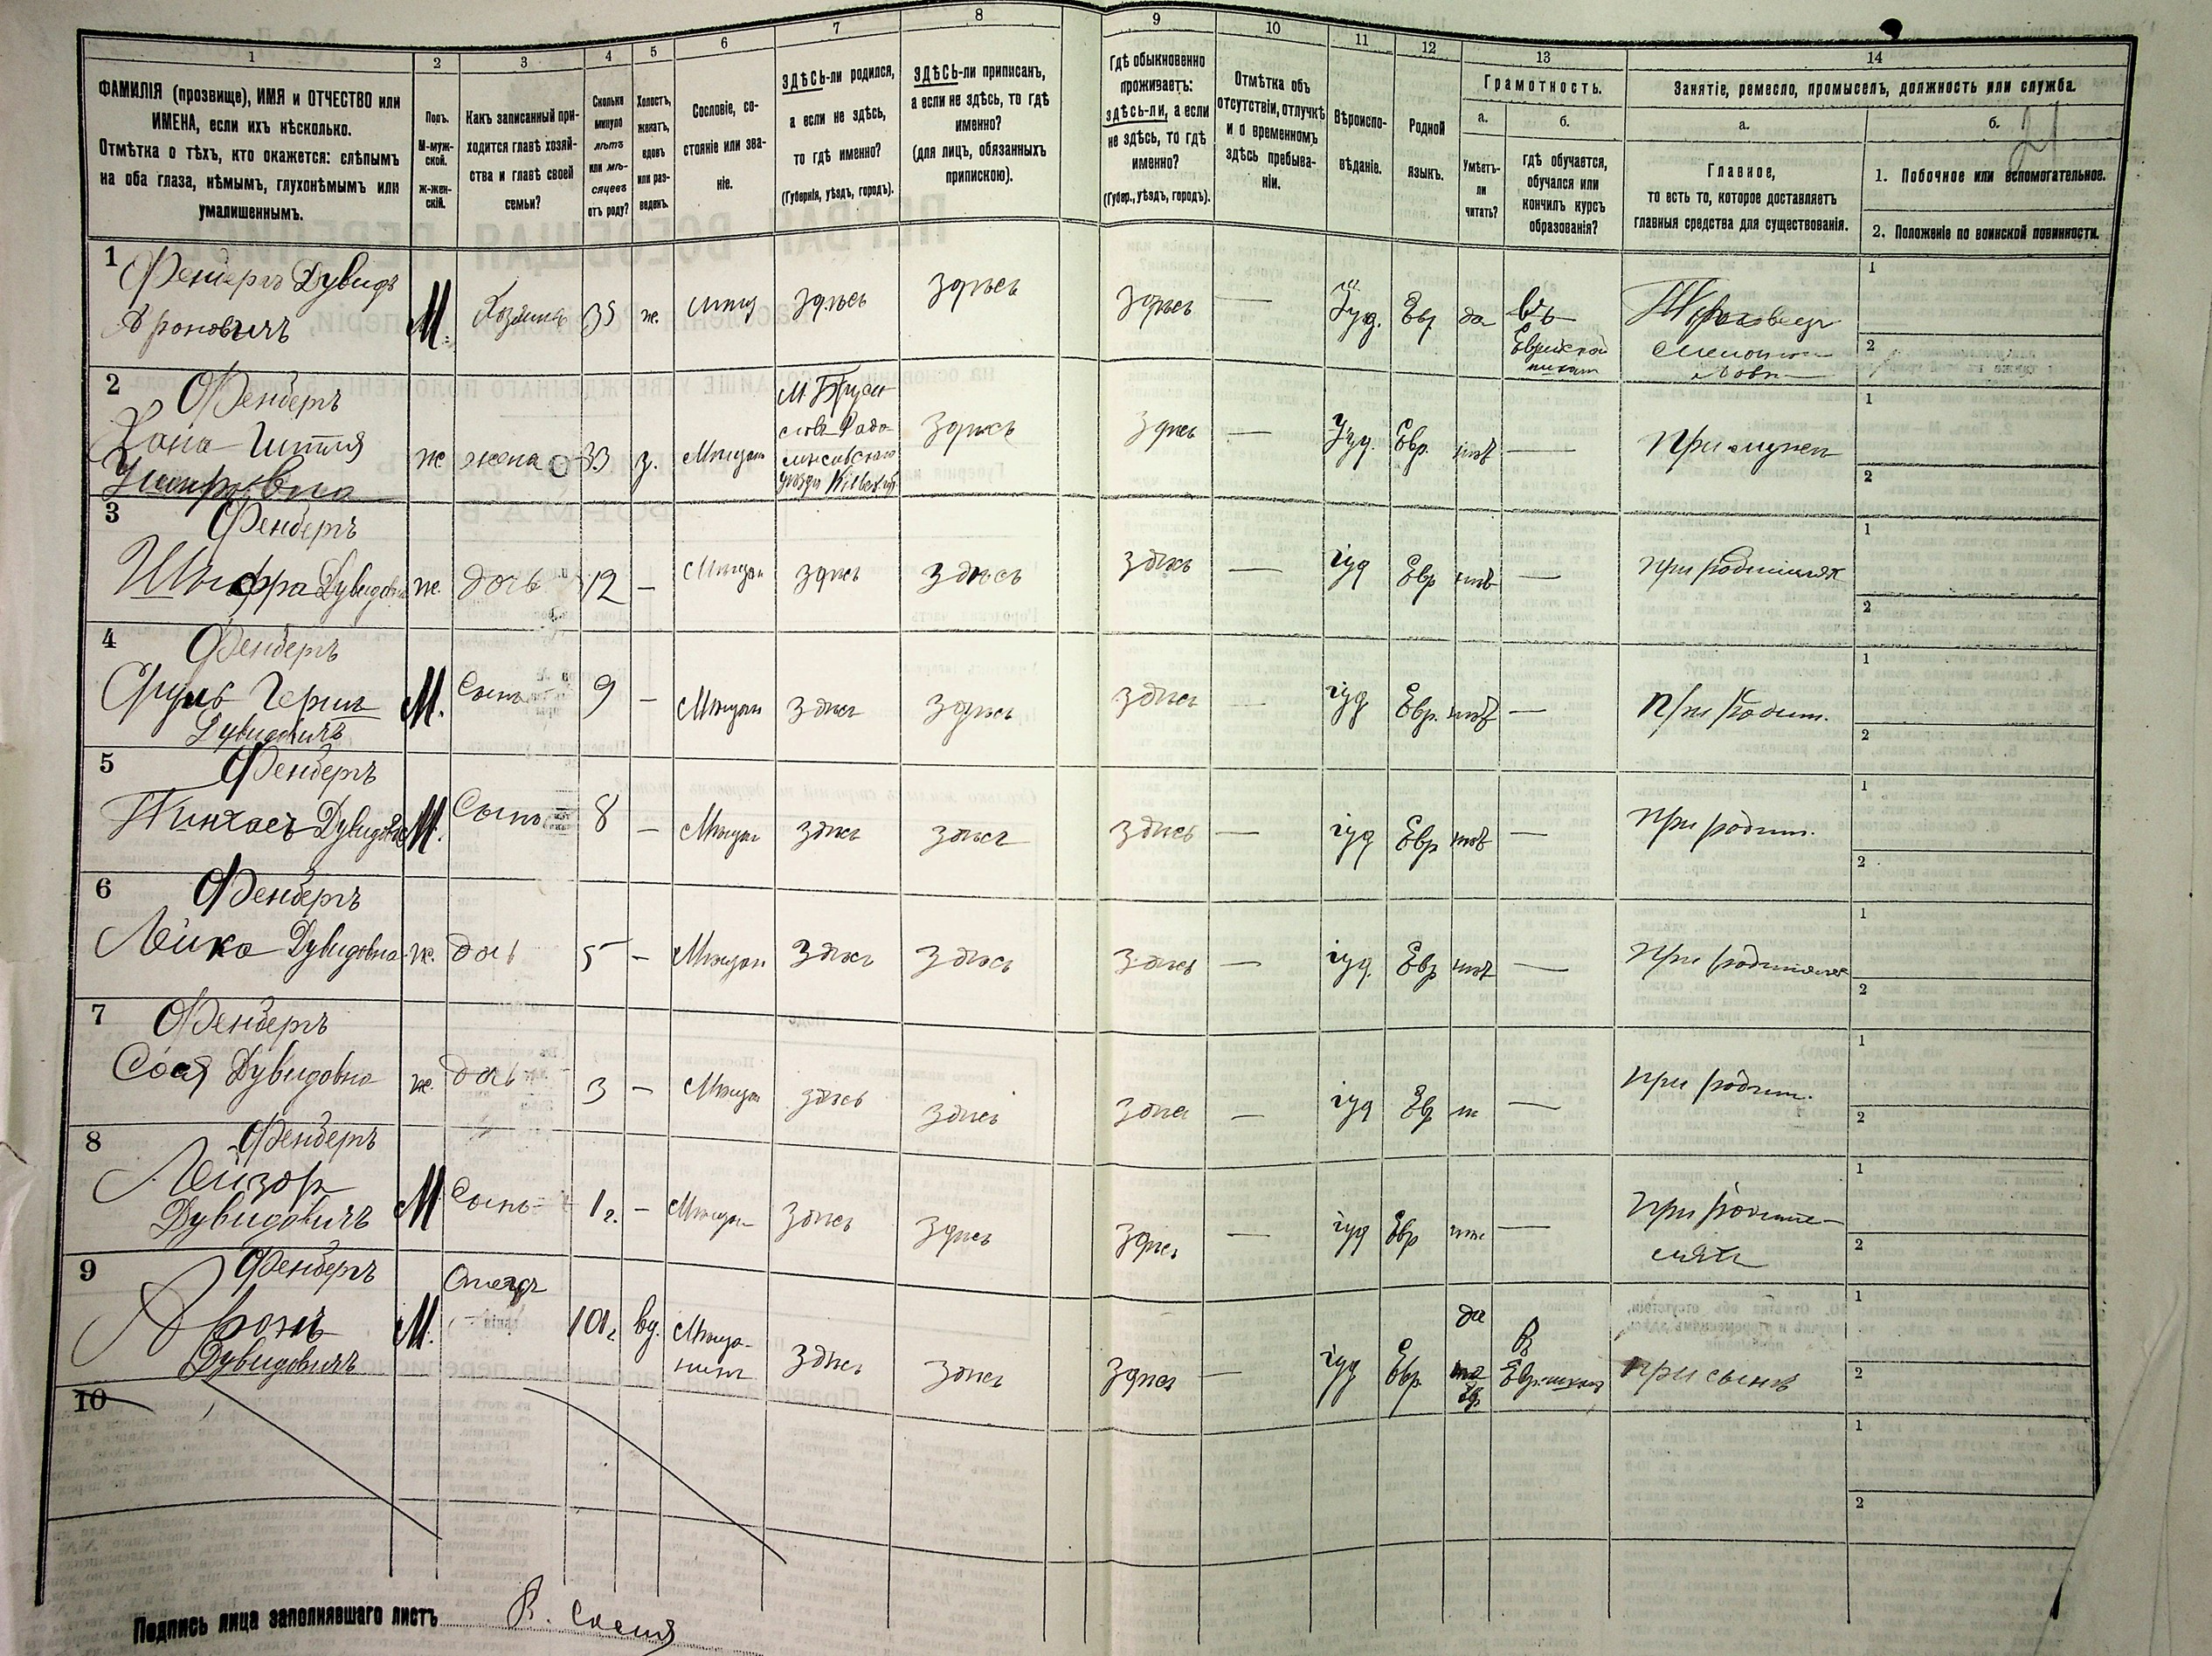 1
2
3
4
5
6
7
8
9
10
11
12
13
14
ФАМИЛІЯ (прозвище), ИМЯ и ОТЧЕСТВО или
ИМЕНА, если ихъ нѣсколько.
Отмѣтка о тѣхъ, кто окажется: слѣпымъ
на оба глаза, нѣмымъ, глухонѣмымъ или
умалишеннымъ.
Полъ.
М-муж-
ской.
ж-жен-
скій.
Какъ записанный при-
ходится главѣ хозяй-
ства и главѣ своей
семьи?
Сколько
минуло
лѣтъ
или мѣ-
сяцевъ
отъ роду?
Холостъ,
женатъ,
вдовъ
или раз-
веденъ.
Сословіе, со-
стояніе или зва-
ніе.
ЗДѢСЬ-ли родился,
а если не здѣсь,
то гдѣ именно?
(Губернія, уѣздъ, городъ).
ЗДѢСЬ-ли приписанъ,
а если не здѣсь, то гдѣ
именно?
(для лицъ, обязанныхъ
припискою).
Гдѣ обыкновенно
проживаетъ:
здѣсь-ли, а если
не здѣсь, то гдѣ
именно?
(Губер., уѣздъ, городъ).
Отмѣтка объ
отсутствіи, отлучкѣ
и о временномъ
здѣсь пребыва-
ніи.
Вѣроиспо-
вѣданіе.
Родной
языкъ.
Грамотность.
а.
Умѣетъ-
ли
читать?
б.
гдѣ обучается,
обучался или
кончилъ курсъ
образованія?
Занятіе, ремесло, промыселъ, должность или служба.
а.
Главное,
то есть то, которое доставляетъ
главныя средства для существованія.
б.
21
1. Побочное или вспомогательное.
2. Положеніе по воинской повинности.
1 Фенберъ Дувидъ
Ароновичъ М. Хозяинъ 35 ж. здѣсь здѣсь здѣсь — Іуд. Евр да Въ
Еврейской
1
2
2 Фенберъ
Хана-
ж жена 33 з. Мѣщан здѣсь здѣсь — Іуд. Евр. нѣт — При мужѣ
1
2
3 Фенберъ
Шифра Дувидовна ж. дочь 12 — Мѣщан здѣсь здѣсь здѣсь — іуд Евр нѣт — При родителях
1
2
4 Фенберъ
Герш
Дувидовичъ М. Сынъ 9 — Мѣщан здѣсь здѣсь здѣсь іуд Евр. нѣт — При родит.
1
2
5 Фенберъ
Пинхосъ Дувидов М. Сынъ 8 — Мѣщан здѣсь здѣсь здѣсь — іуд Евр нѣт — При родит.
1
2
6 Фенберъ
Лейка Дувидовна ж. дочь 5 — Мѣщан здѣсь здѣсь здѣсь — іуд. Евр нѣт — При родителях
1
2
7 Фенберъ
Сося Дувидовна ж. дочь 3 — Мѣщан здѣсь здѣсь здѣсь — іуд Евр — При родит.
1
2
8 Фенберъ
Лейзор
Дувидовичъ М Сынъ 1 г. — Мѣщан здѣсь здѣсь здѣсь — іуд Евр — При родите-
ляхъ
1
2
9 Фенберъ
Аронъ
Дувидовичъ М. Отецъ 101 г вд. Мѣща-
нин здѣсь здѣсь здѣсь — іуд Евр. да В При сынѣ
1
2
10
1
2
Подпись лица заполнявшаго листъ